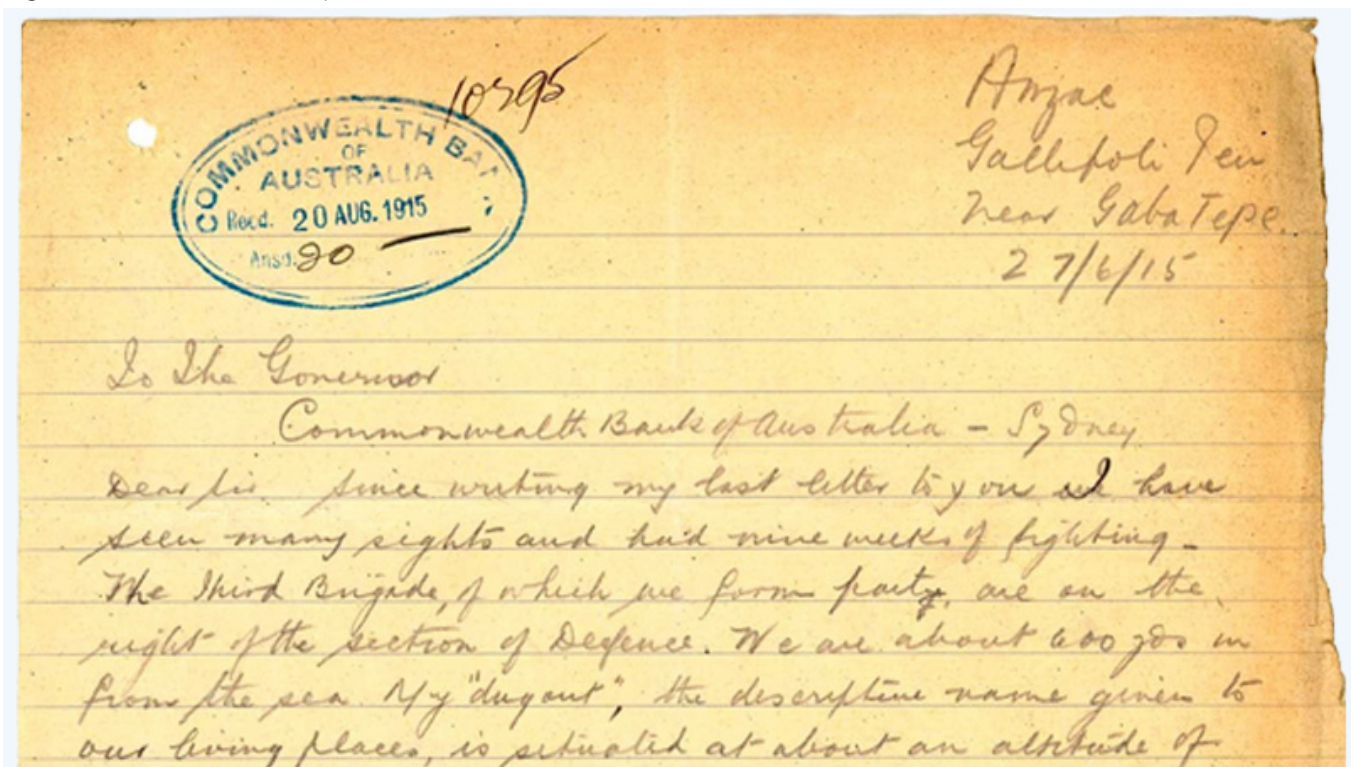 10595
COMMONWEALTH BANK
OF
AUSTRALIA
Recd. 20 AUG. 1915
Ansd. 20
Anzac
Gallipoli Pen
Near Gaba Tepe.
27/6/15
To The Governor
Commonwealth Bank of Australia - Sydney
Dear Sir Since writing my last letter to you I have
seen many sights and had nine weeks of fighting -
The Third Brigade, of which we form party, are on the
right of the section of Defence. We are about 600 yds in
from the sea. My "dugout", the descriptive name given to
our living places, is situated at about an altitude of